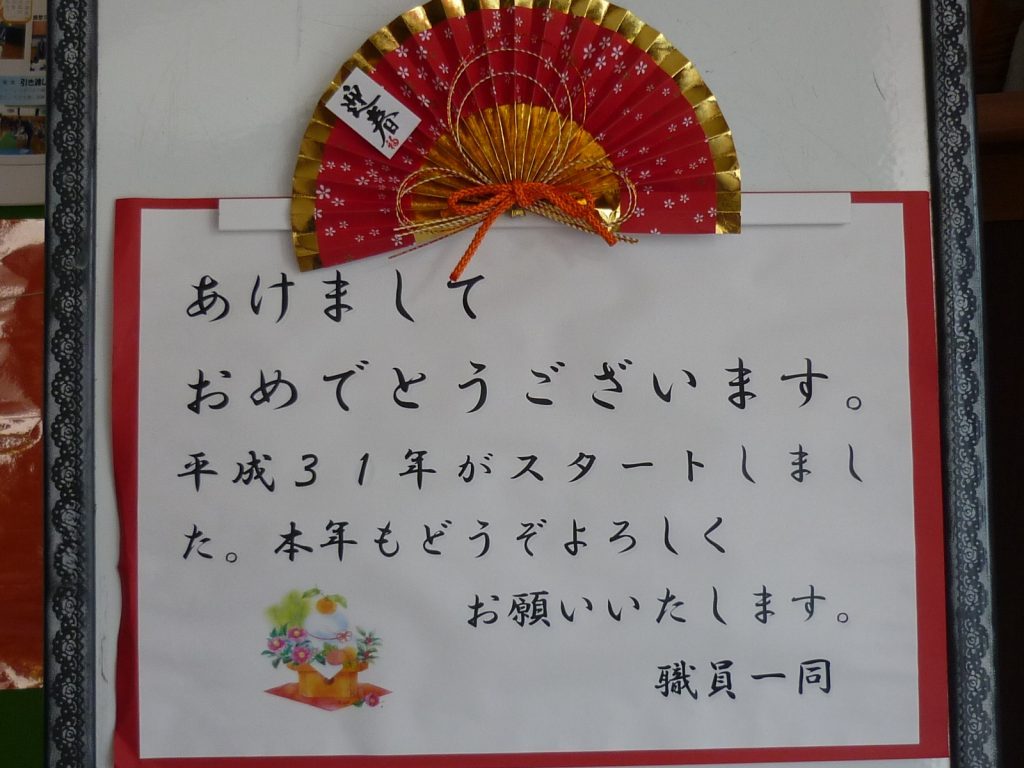 引き渡し
迎春
福
あけまして
おめでとうございます。
平成31年がスタートしまし
た。本年もどうぞよろしく
お願いいたします。
職員一同